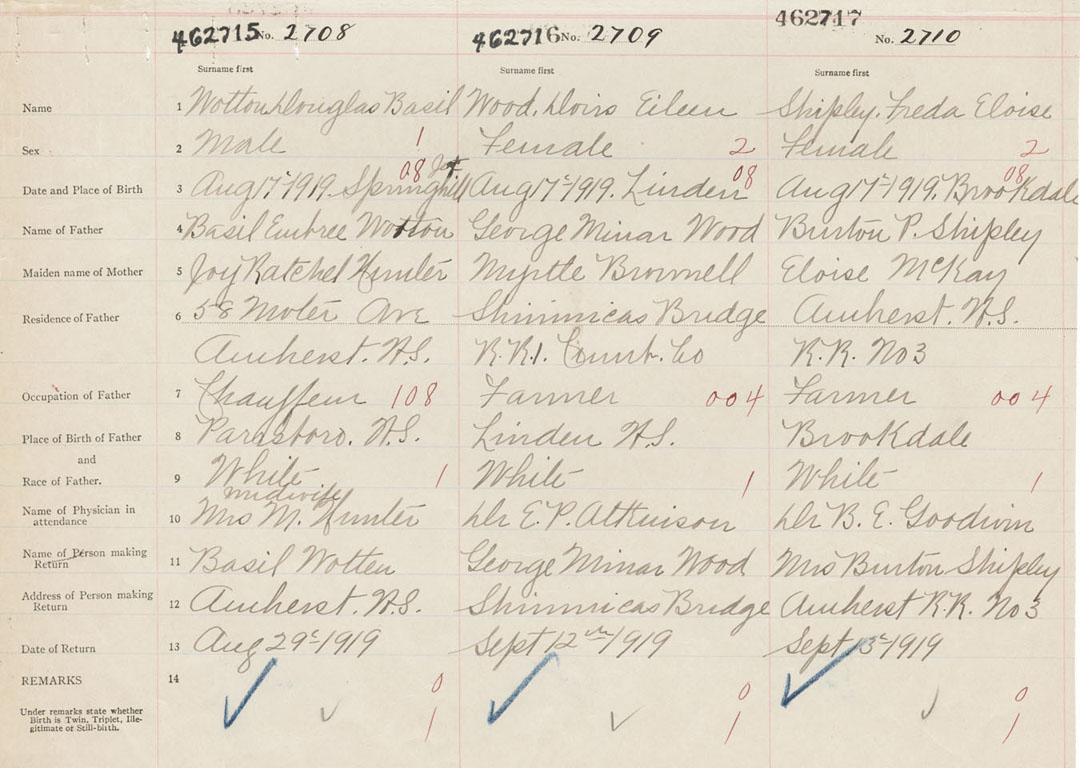 462715 No. 2708 462716 No. 2709 462717 No. 2710
Surname first Surname first Surname first
Name 1 Wotton Douglas Basil Wood, Doirs Eileen Shipley, Freda Eloise
Sex 2 Male 1 Female 2 Female 2
08 08 08
Date and Place of Birth 3 Aug 17th 1919. Springhill Aug 17th 1919. Linden Aug 17th 1919. Brookdale
Name of Father 4 Basil Embree Wotton George Minar Wood Burton P. Shipley
Maiden name of Mother 5 Joy Ratchel Hunter Myrtle Brownell Eloise McKay
Residence of Father 6 58 Ave Shinimicas Bridge Amherst. N.S.
Amherst. N.S. R.R.1. Cumb. Co R.R. No 3
Occupation of Father 7 Chauffeur 108 Farmer 004 Farmer 004
Place of Birth of Father 8 Parrsboro. N.S. Linden N.S. Brookdale
and
Race of Father. 9 White 1 White 1 White 1
midwife
Name of Physician in attendance 10 Mrs M. Hunter Dr E. P. Atkinson Dr B. E. Goodwin
Name of Person making Return 11 Basil Wotten George Minar Wood Mrs Burton Shipley
Address of Person making Return 12 Amherst. N.S. Shinimicas Bridge Amherst R.R. No 3
Date of Return 13 Aug 29th 1919 Sept 12th 1919 Sept 13th 1919
REMARKS 14 0 0 0
Under remarks state whether Birth is Twin, Triplet, Illegitimate or Still-birth. 1 1 1